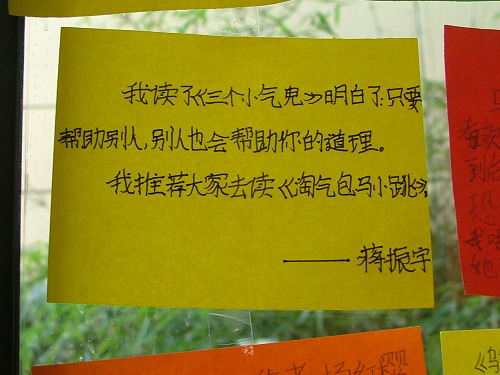 我读了《三个小气鬼》明白了:只要
帮助别人,别人也会帮助你的道理。
我推荐大家去读《淘气包马小跳》。
——蒋振宇
每次
恐
她
作者:杨红樱
《乌